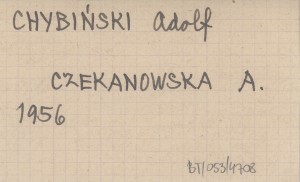 CHYBIŃSKI Adolf
CZEKANOWSKA A.
1956
BT/053/4708